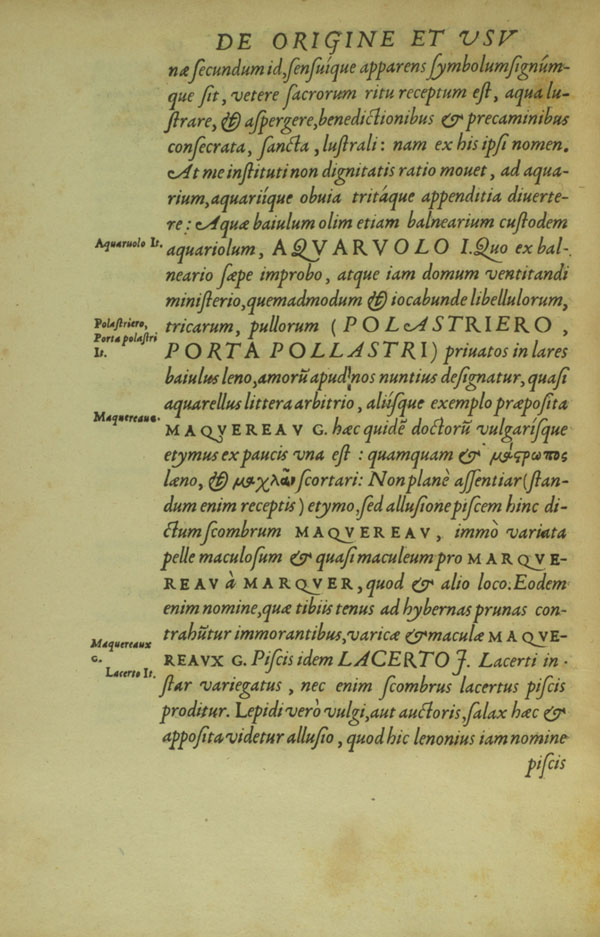 DE ORIGINE ET VSV
næ secundum id, sensuíque apparens symbolum signúm-
que sit, vetere sacrorum ritu receptum est, aqua lu-
strare, & aspergere, benedictionibus & precaminibus
consecrata, sancta, lustrali: nam ex his ipsi nomen.
At me instituti non dignitatis ratio mouet, ad aqua-
rium, aquariíque obuia tritáque appenditia diuerte-
re: Aquæ baiulum olim etiam balnearium custodem
Aquaruolo It. aquariolum, AQVARVOLO I. Quo ex bal-
neario sæpe improbo, atque iam domum ventitandi
ministerio, quemadmodum & iocabunde libellulorum,
Polastriero, tricarum, pullorum (POLASTRIERO,
Porta polastri It. PORTA POLLASTRI) priuatos in lares
baiulus leno, amorũ apud nos nuntius designatur, quasi
aquarellus littera arbitrio, aliísque exemplo præposita
Maquereaue. MAQVEREAV G. hæc quidẽ doctorũ vulgarísque
etymus ex paucis vna est: quamquam &
læno, & scortari: Non planè assentiar (stan-
dum enim receptis) etymo, sed allusione piscem hinc di-
ctum scombrum MAQVEREAV, immò variata
pelle maculosum & quasi maculeum pro MARQVE-
REAV à MARQVER, quod & alio loco. Eodem
enim nomine, quæ tibiis tenus ad hybernas prunas con-
trahũtur immorantibus, varicæ & maculæ MAQVE-
Maquereaux G. REAVX G. Piscis idem LACERTO J. Lacerti in-
Lacerto It. star variegatus, nec enim scombrus lacertus piscis
proditur. Lepidi verò vulgi, aut auctoris, salax hæc &
apposita videtur allusio, quod hic lenonius iam nomine
piscis